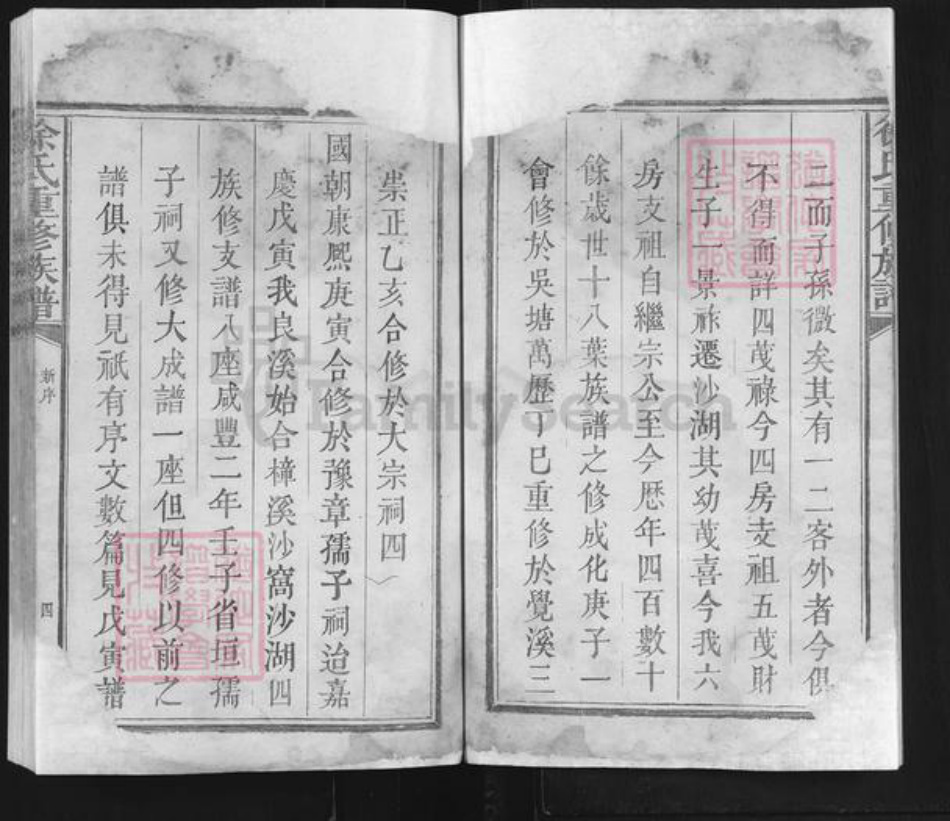 二而子孫微矣其有一二客外者今俱
不得而詳四茂祿今四房支祖五茂財
生子一景祚遷沙湖其幼茂喜今我六
房支祖自繼宗公至今歷年四百數十
餘歲世十八葉族譜之修成化庚子一
會修於吳塘萬歷丁巳重修於覺溪三
崇正乙亥合修於大宗祠四
國朝康熙庚寅合修於豫章孺子祠迨嘉
慶戊寅我良溪始合樟溪沙窩沙湖四
族修支譜八座咸豐二年壬子省垣孺
子祠又修大成譜一座但四修以前之
譜俱未得見祇有序文數篇見戊寅譜
徐氏重修族譜
新序
四
徐氏重修族譜
FamilySearch